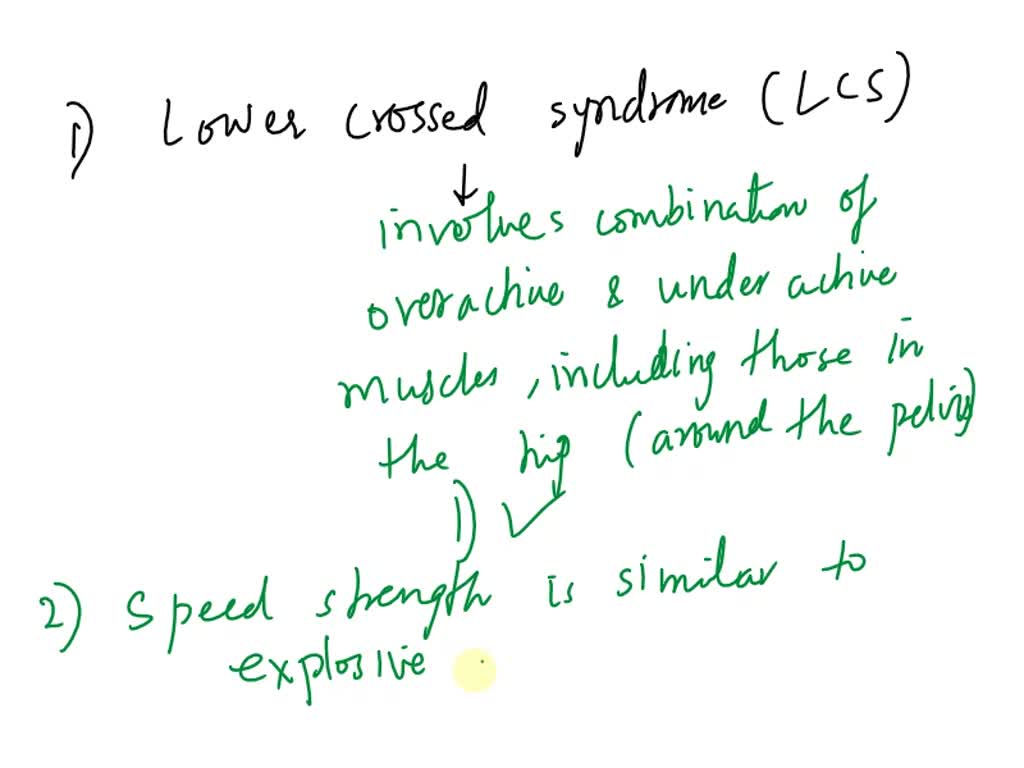 1) Lower crossed syndrome (LCS)
↓
involves combination of
overactive & under active
muscles, including those in
the hip (around the pelvis)
1) ✓
2) Speed strength is similar to
explosive